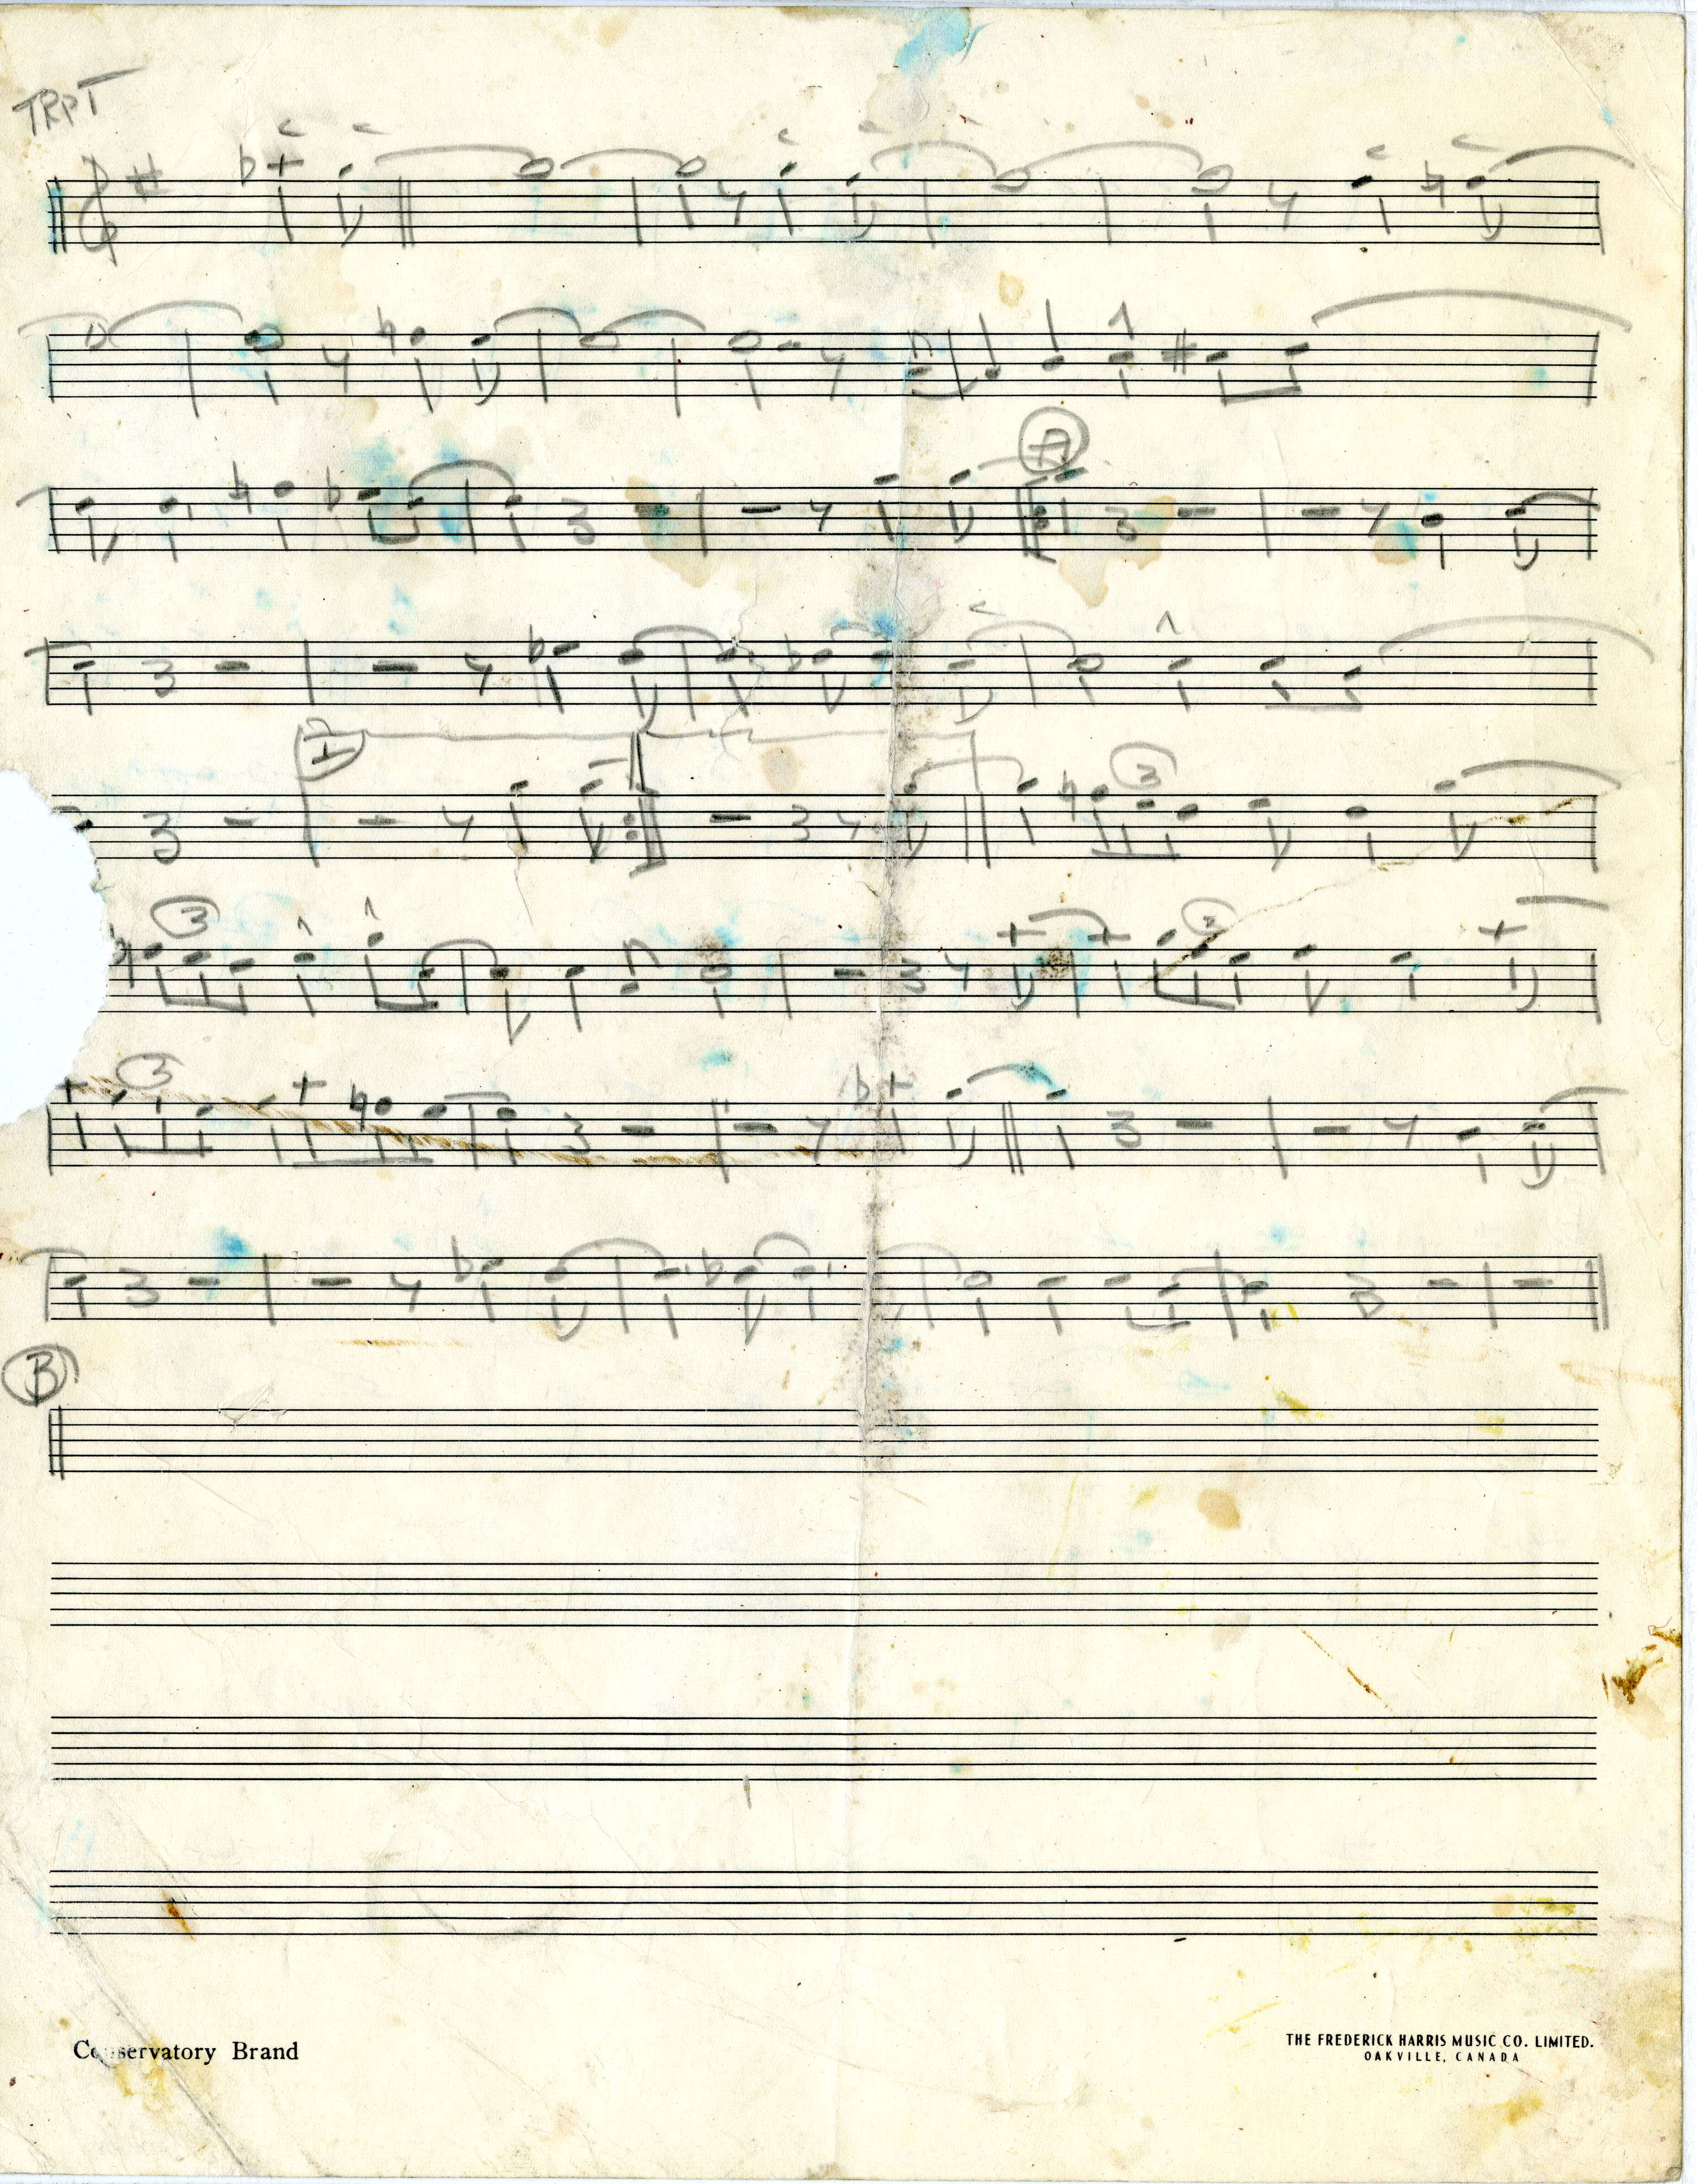 TRPT
A
1
3
3
3
3
B
Conservatory Brand
THE FREDERICK HARRIS MUSIC CO. LIMITED.
OAKVILLE, CANADA